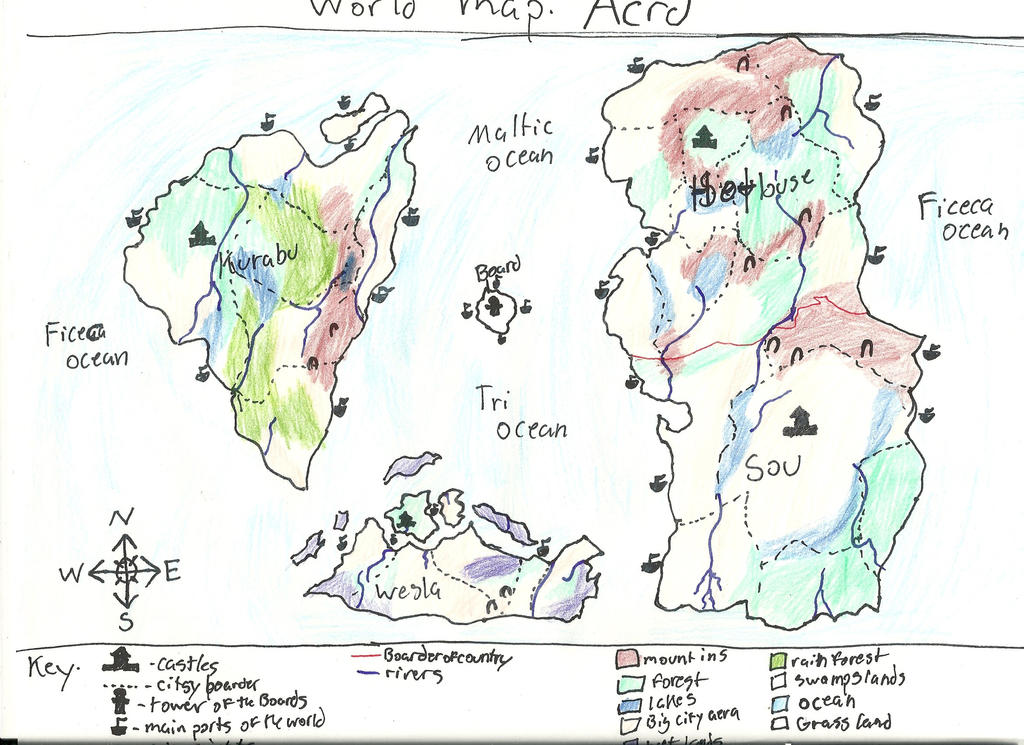 World map. Acrd
Maltic
ocean
Ficeca
ocean
Kurabu
Board
Ficeca
ocean
Tri
ocean
SOU
Wesla
N
W
E
S
Key.
- castles
- citsy boarder
- tower of the Boards
- main ports of the world
Boarder of country
rivers
mountins
forest
lakes
Big city aera
rain forest
swamps lands
ocean
Grass land